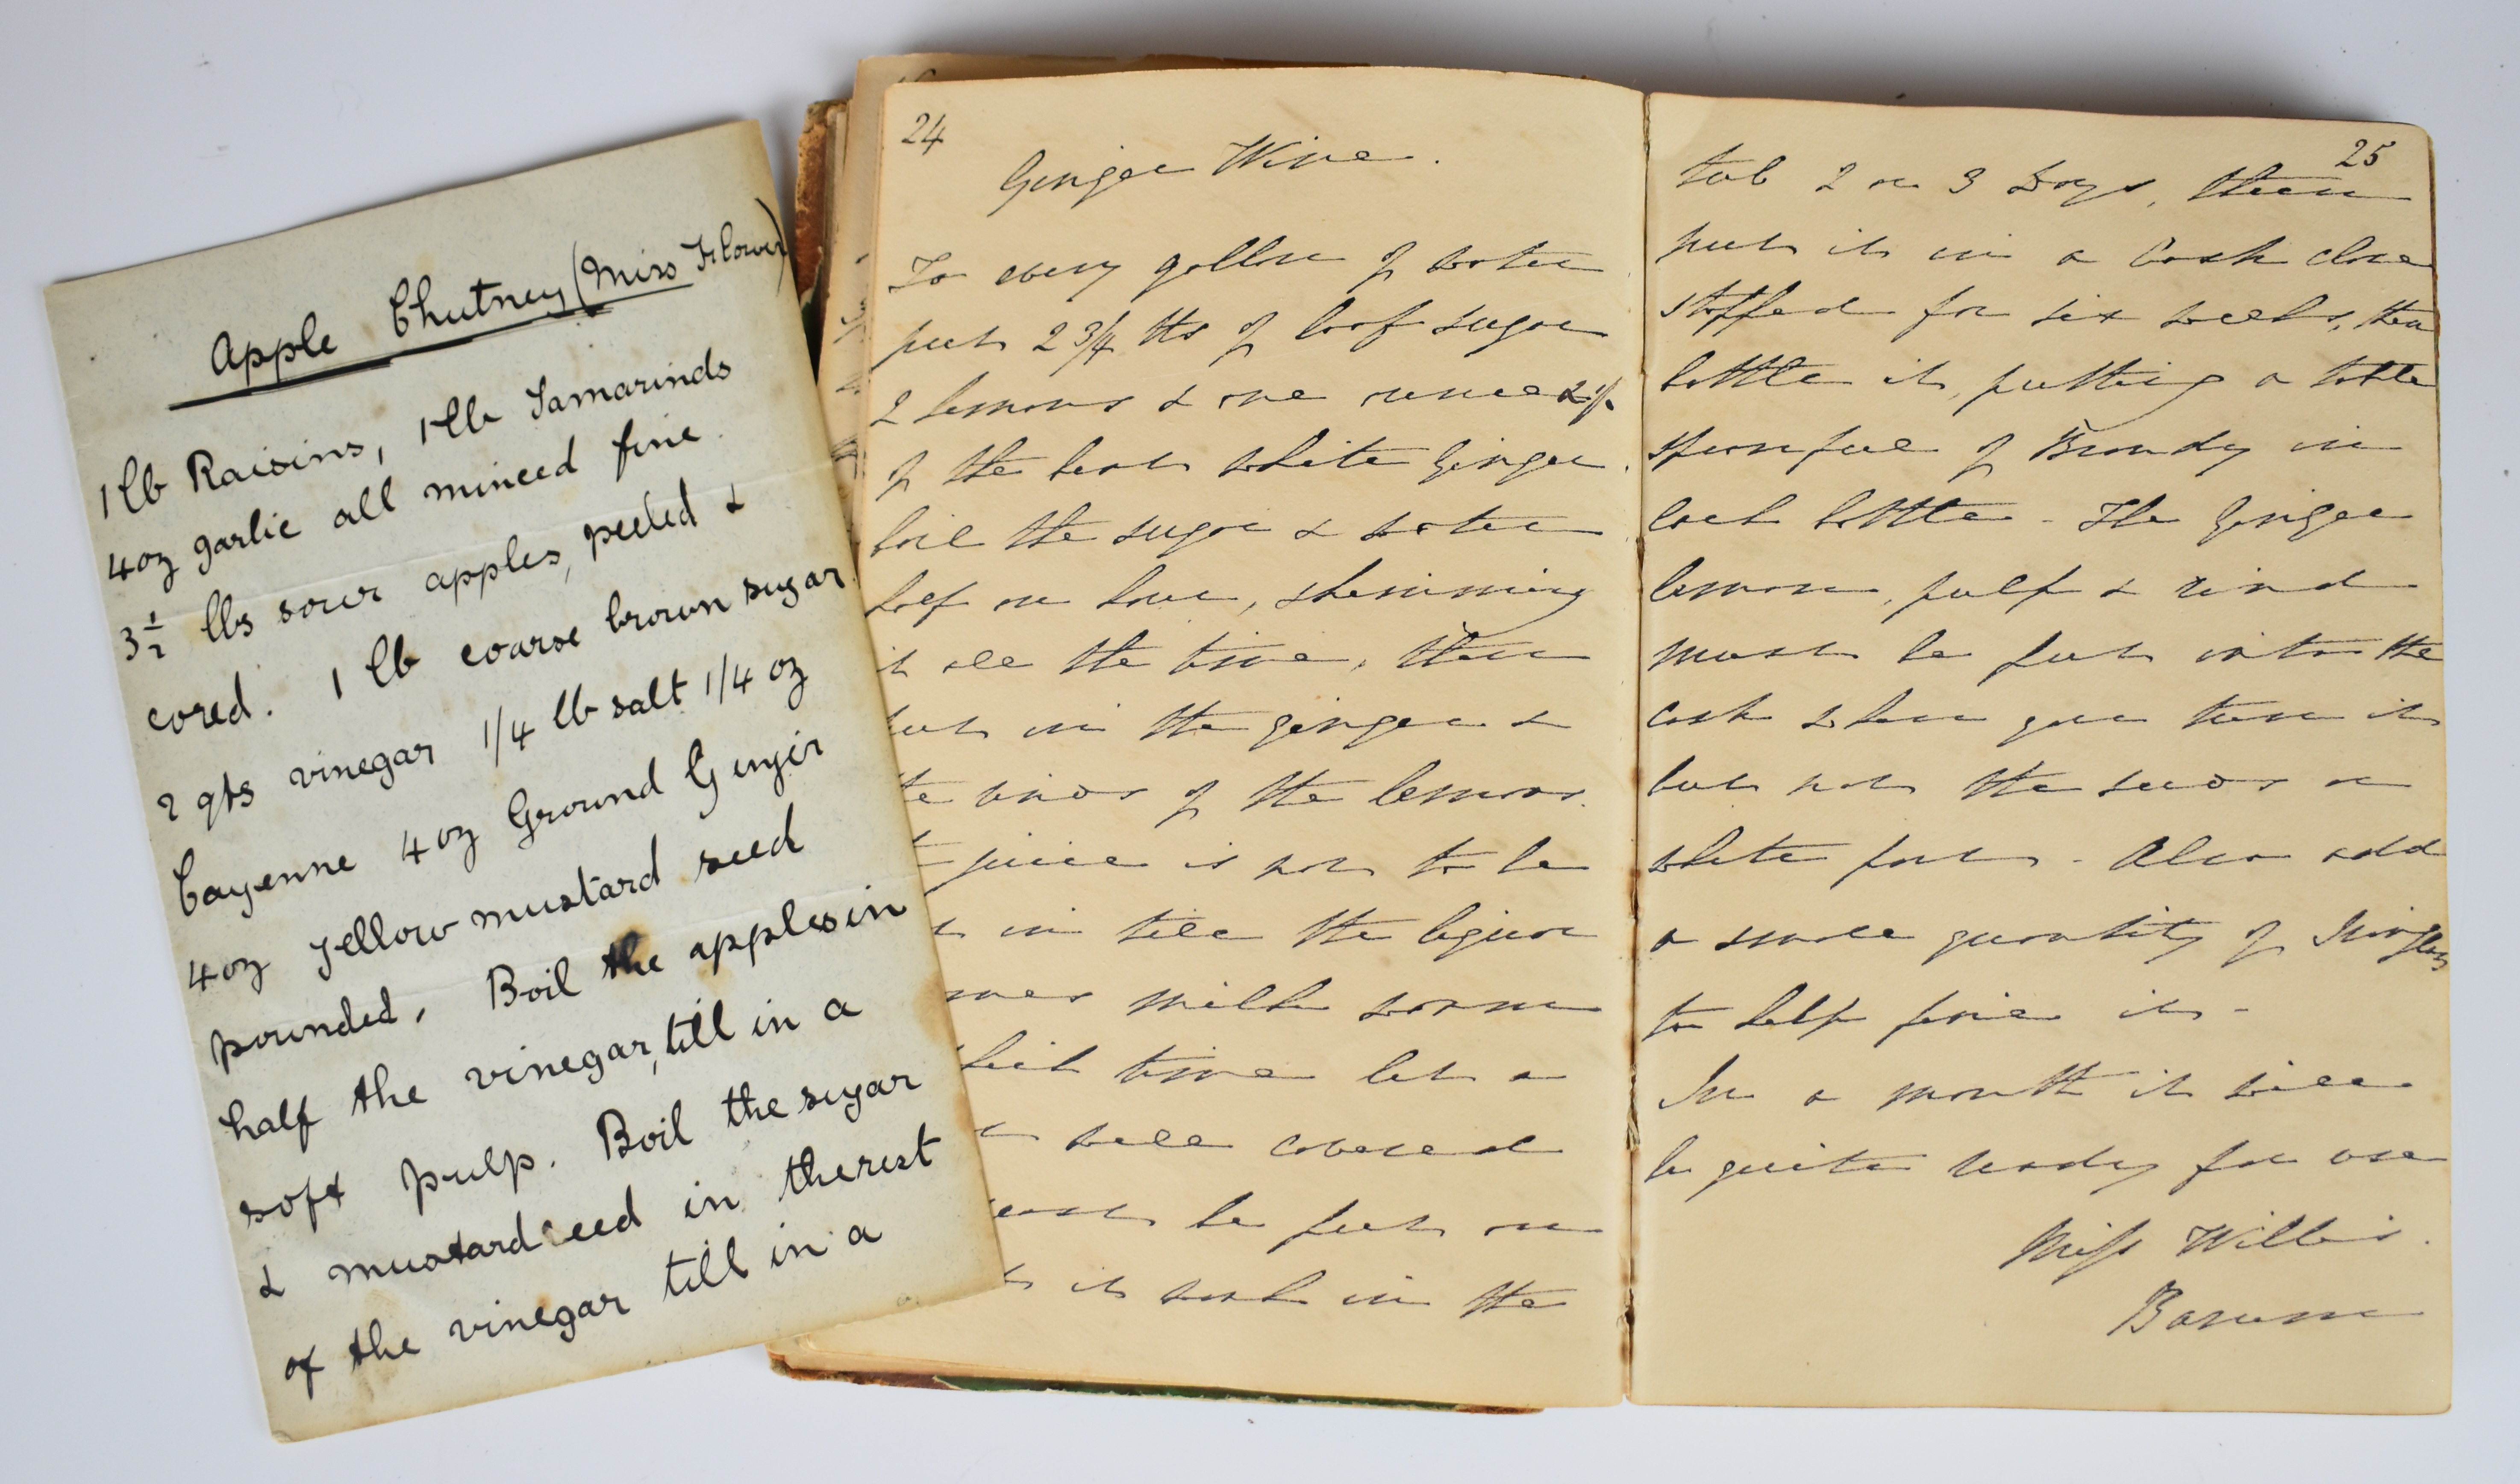 Apple Chutney (Miss Flower)
1 lb Raisins, 1 lb Tamarinds
4 oz garlic all minced fine.
3 1/2 lbs sour apples, peeled &
cored. 1 lb coarse brown sugar.
2 qts vinegar 1/4 lb salt 1/4 oz
Cayenne 4 oz Ground Ginger
4 oz yellow mustard seed
pounded. Boil the apples in
half the vinegar, till in a
soft pulp. Boil the sugar
& mustard seed in the rest
of the vinegar till in a
24
Ginger Wine.
To every gallon of water
put 2 3/4 lbs of loaf sugar
2 lemons & one ounce
of the best white Ginger.
boil the sugar & water
half an hour, skimming
it all the time, then
put in the ginger &
the rinds of the lemons.
juice is not to be
in till the liquor
milk warm
time let a
well covered
be put on
it work in the
25
tub 2 or 3 Days, then
put it in a Cask close
stopped for six weeks, then
bottle it, putting a table
spoonful of Brandy in
each bottle - The Ginger
lemon, pulp & rind
must be put into the
cask when you tun it
but not the seeds or
white part - Also add
a small quantity of Isinglass
to help fine it -
In a month it will
be quite ready for use
Miss Willis.
Barum